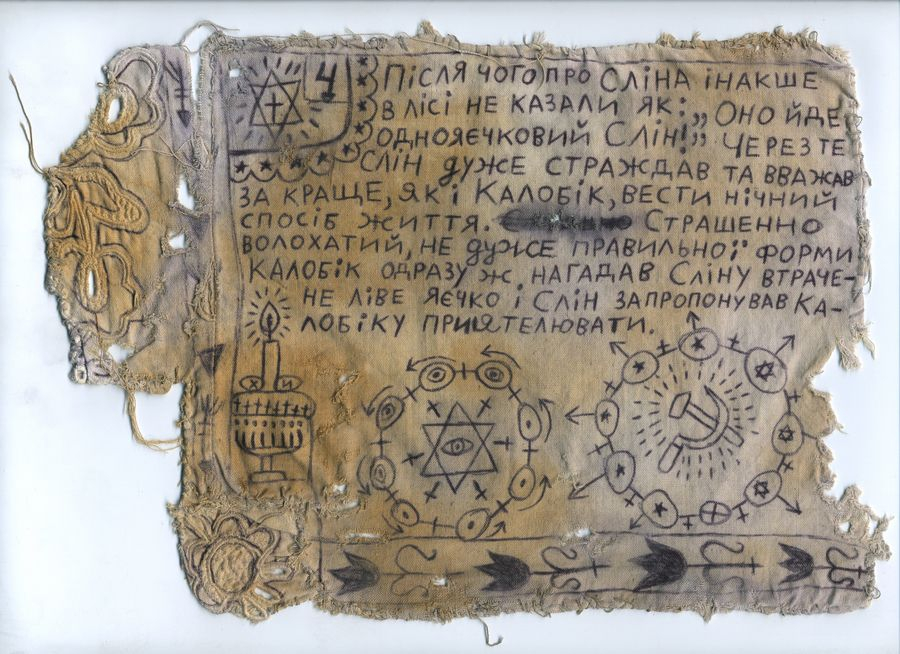 Ч
Після чого про Сліна інакше
в лісі не казали як: „Оно йде
однояєчковий Слін!„ Через те
Слін дуже страждав та вважав
за краще, як і Калобік, вести нічний
спосіб життя. Страшенно
волохатий, не дуже правильної форми
Калобік одразу ж нагадав Сліну втраче-
не ліве яєчко і Слін запропонував Ка-
лобіку приятелювати.
Х И